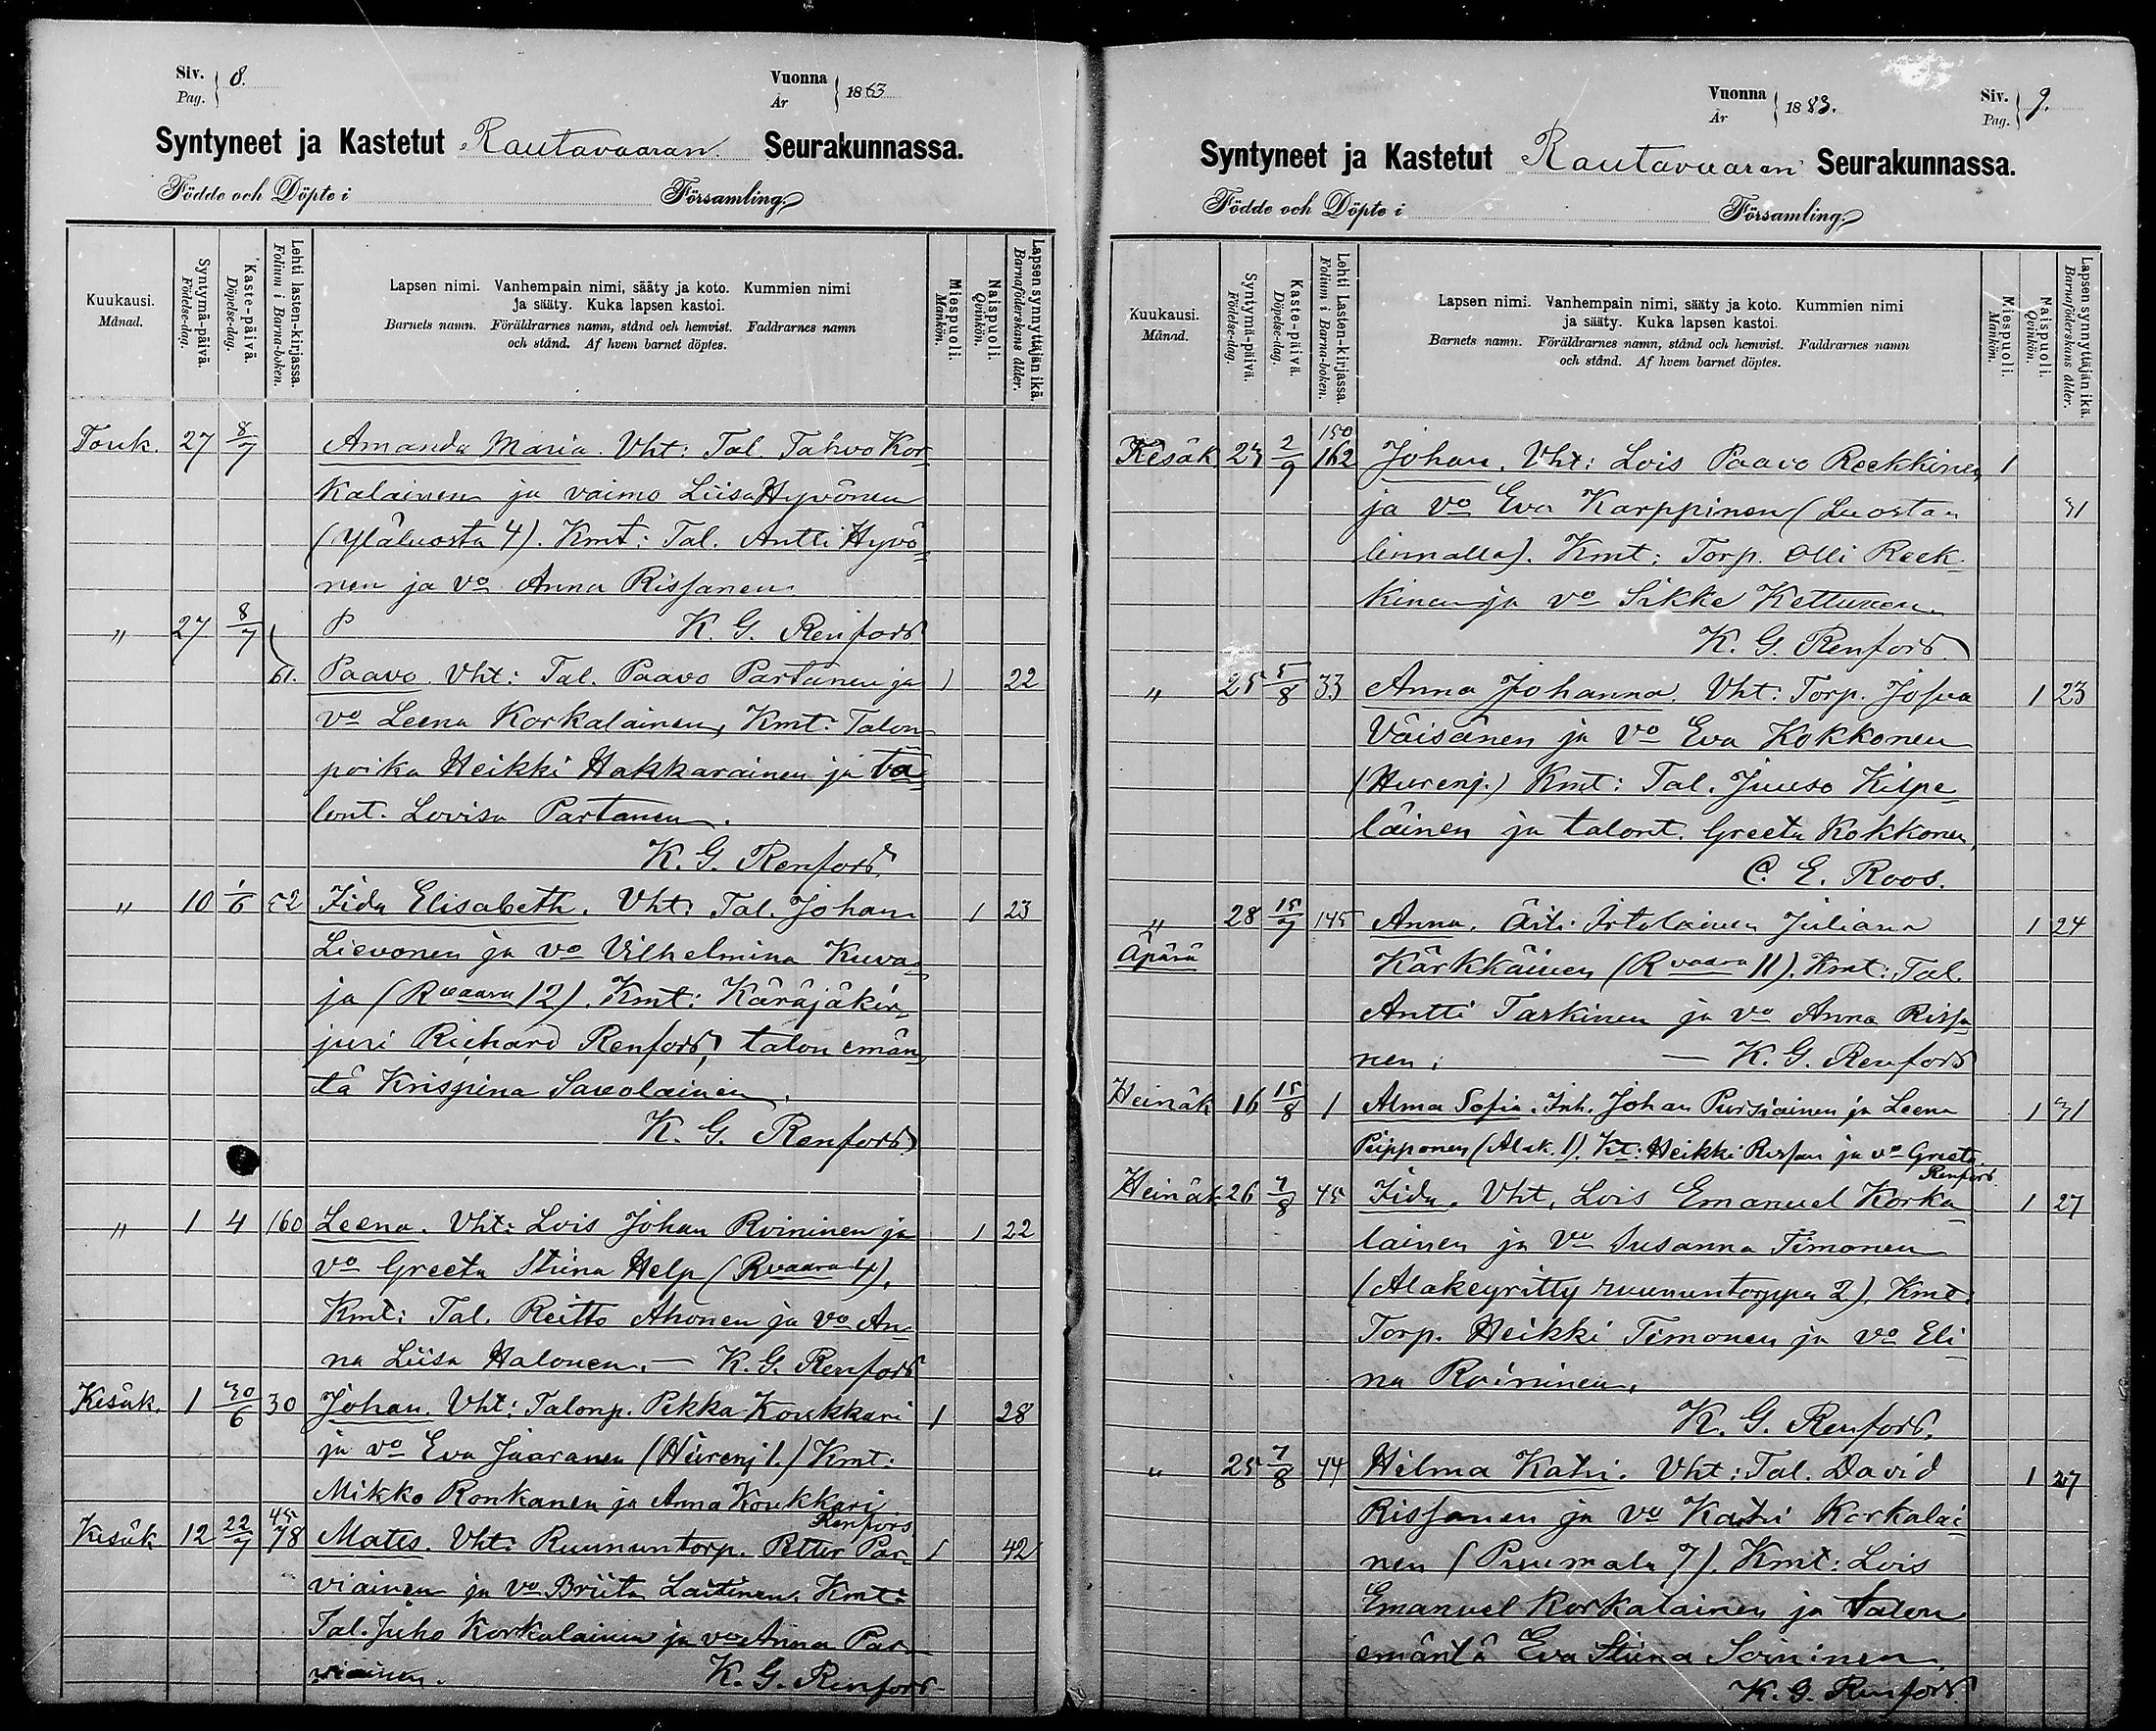 Siv. 8.
Pag.
Vuonna 1883
År
Syntyneet ja Kastetut Rautavaaran Seurakunnassa.
Födde och Döpte i Församling.
Kuukausi.
Månad.
Syntymä-päivä.
Födelse-dag.
Kaste-päivä.
Döpelse-dag.
Lehti lasten-kirjassa.
Folium i Barna-boken.
Lapsen nimi. Vanhempain nimi, sääty ja koto. Kummien nimi
ja sääty. Kuka lapsen kastoi.
Barnets namn. Föräldrarnes namn, stånd och hemvist. Faddrarnes namn
och stånd. Af hvem barnet döptes.
Miespuoli.
Mankön.
Naispuoli.
Qvinkön.
Lapsen synnyttäjän ikä.
Barnaföderskans ålder.
Touk. 27 8/7 Amanda Maria. Vht: Tal. Tahvo Kor-
kalainen ja vaimo Liisa Hyvönen
(Yläluosta 4). Kmt: Tal. Antti Hyvö-
nen ja vo Anna Rissanen
" 27 8/7 P K. G. Renfors
61. Paavo. Vht: Tal. Paavo Partanen ja 1 22
vo Leena Korkalainen, Kmt: Talon-
poika Heikki Hakkarainen ja ta-
lont. Lovisa Partanen.
K. G. Renfors.
" 10 1/6 52 Iida Elisabeth. Vht: Tal. Johan 1 23
Lievonen ja vo Vilhelmina Kuva-
ja (Rvaara 12). Kmt: Käräjäkir-
juri Richard Renfors, talon emän-
tä Krispina Savolainen.
K. G. Renfors
" 1 4 160 Leena. Vht: Lois Johan Roininen ja 1 22
vo Greeta Stiina Help (Rvaara 4),
Kmt: Tal. Reitto Ahonen ja vo An-
na Liisa Halonen. — K. G. Renfors
Kesäk. 1 30/6 30 Johan. Vht: Talonp. Pekka Koukkari 1 28
ja vo Eva Jaaranen (Hiirenj 1.) Kmt:
Mikko Ronkanen ja Anna Koukkari
Renfors
45
Kesäk 12 22/7 78 Mates. Vht: Ruununtorp. Petter Par- 1 42
viainen ja vo Briita Laitinen. Kmt:
Tal. Juho Korkalainen ja vo Anna Par-
viainen. K. G. Renfors
Vuonna 1883.
År
Siv. 9.
Pag.
Syntyneet ja Kastetut Rautavaaran Seurakunnassa.
Födde och Döpte i Församling.
Kuukausi.
Månad.
Syntymä-päivä.
Födelse-dag.
Kaste-päivä.
Döpelse-dag.
Lehti Lasten-kirjassa.
Folium i Barna-boken.
Lapsen nimi. Vanhempain nimi, sääty ja koto. Kummien nimi
ja sääty. Kuka lapsen kastoi.
Barnets namn. Föräldrarnes namn, stånd och hemvist. Faddrarnes namn
och stånd. Af hvem barnet döptes.
Miespuoli.
Mankön.
Naispuoli.
Qvinkön.
Lapsen synnyttäjän ikä.
Barnaföderskans ålder.
150
Kesäk 23 2/9 162 Johan. Vht: Lois Paavo Reekkinen 1
ja vo Eva Karppinen (Luostan 31
linnalla). Kmt: Torp. Olli Reek-
kinen ja vo Sikke Kettunen.
K. G. Renfors.
" 25 5/8 33 Anna Johanna. Vht: Torp. Josua 1 23
Väisänen ja vo Eva Kokkonen
(Hiirenj.) Kmt: Tal. Juuso Kilpe-
läinen ja talont. Greeta Kokkonen,
C. E. Roos.
" 28 15/7 145 Anna. Äiti: Irtolainen Juliana 1 24
Äpärä Kärkkäinen (Rvaara 11). Kmt: Tal.
Antti Taskinen ja vo Anna Rissa-
nen. — K. G. Renfors
Heinäk 16 15/8 1 Alma Sofia. Inh. Johan Pursiainen ja Leena 1 31
Piipponen (Alak. 1). Kt: Heikki Rissan ja vo Greeta
Renfors.
Heinäk 26 7/8 45 Iida. Vht. Lois Emanuel Korka- 1 27
lainen ja vo Susanna Timonen
(Alakeyritty ruununtorppa 2). Kmt:
Torp. Heikki Timonen ja vo Eli-
na Roininen.
K. G. Renfors.
" 25 7/8 44 Hilma Katri. Vht: Tal. David 1 27
Rissanen ja vo Katri Korkalai-
nen (Puumala 7). Kmt: Lois
Emanuel Korkalainen ja talon
emäntä Eva Stiina Soininen.
K. G. Renfors.